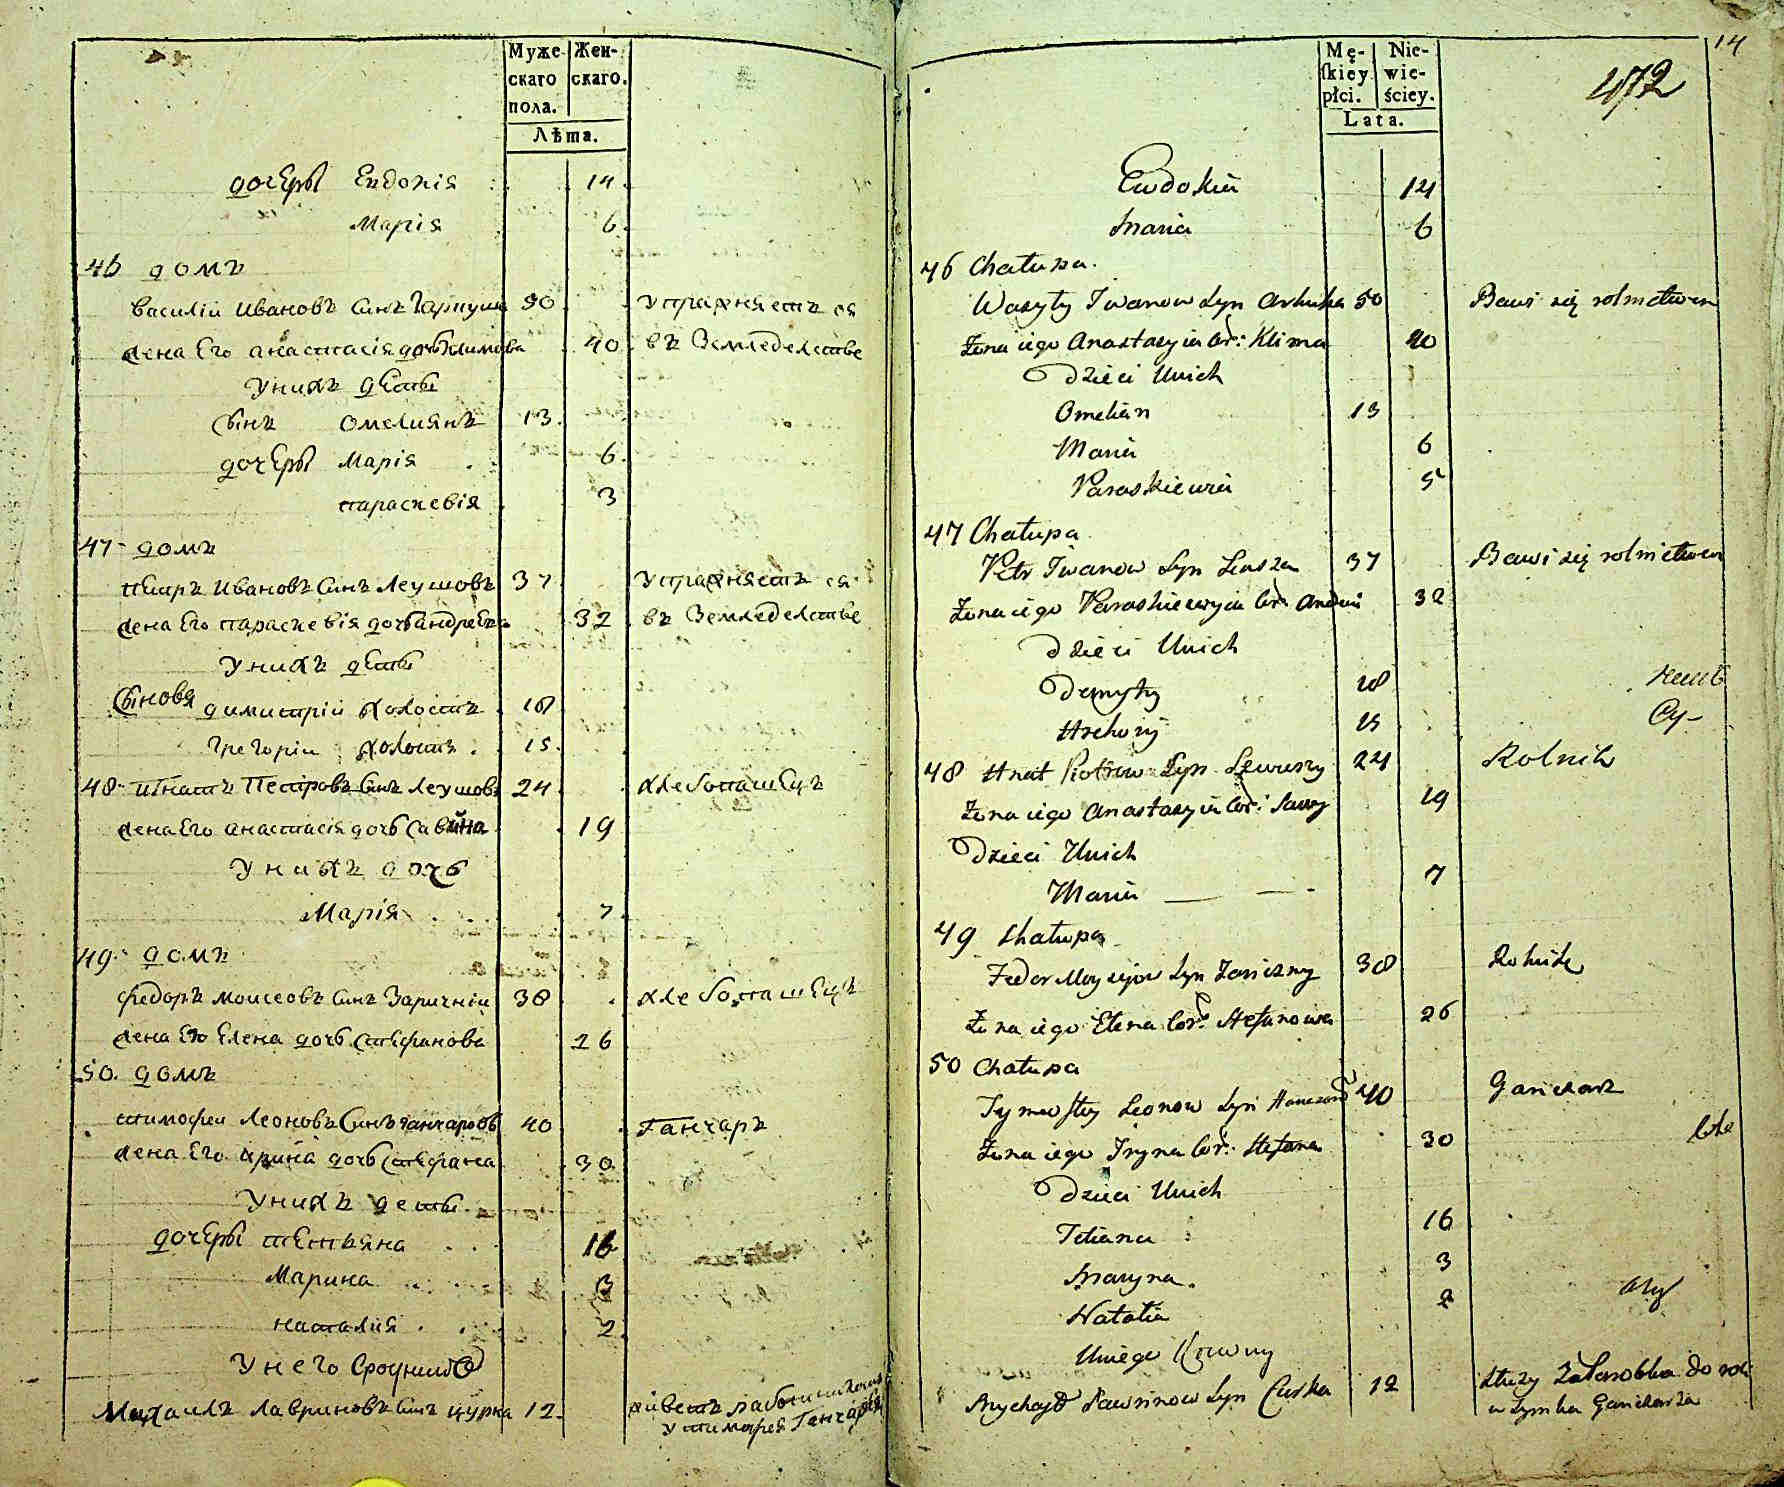 Муже- Жен-
скаго скаго.
пола.
Лѣта.
дочеры Евдокія 14
Марія 6
46 домъ
Василій Ивановъ синъ 50 Упражняетъ ся
жена Его анастасія дочь Климова 40 въ Земледелстве
Унихъ дѣты
сынъ Омелиянъ 13
дочеры Марія 6
параскевія 3
47 домъ
петръ Ивановъ синъ Леушовъ 37 Упражняетъ ся
жена Его параскевія дочь андреева 32 въ Земледелстве
Унихъ дѣты
сыновя димитрій холостъ 18
Григорій холостъ 15
48 игнатъ Петровъ синъ Леушовъ 24 хлебопашецъ
жена Его анастасія дочь Савина 19
Унихъ дочь
Марія 7
49 домъ
федоръ моисеовъ синъ Заричній 38 хлебопашецъ
жена Его Елена дочь Стефанова 26
50. домъ
тимофей Леоновъ синъ ганчаровъ 40 Ганчаръ
жена Его ирина дочь Стефана 30
Унихъ дети
дочеры тетьяна 16
Марина 3
наталия 2
Унего
Михаилъ Лавриновъ синъ цурка 12 живетъ
у тимофея Ганчара
14
Mę- Nie-
skiey wie-
płci. ściey.
Lata.
472
Ewdokia 14
Maria 6
46 Chałupa.
Wasyly Iwanow Syn 50 Bawi się rolnictwem
Żona iego Anastazyia Cor: Klima 40
Dzieci Unich
Omelian 13
Maria 6
Paraskiewia 5
47 Chałupa
Petr Iwanow Syn 37 Bawi się rolnictwem
Żona iego Paraskiewyia Cor: 32
Dzieci Unich
Dmytry 18
Hrehory 15
48 Hnat Piotrow Syn Lewuszy 24 Rolnik
Żona iego Anastazyia Cor: Sawy 19
Dzieci Unich
Maria 7
49 Chałupa
Fedor Moysiow Syn Zariczny 38 Rolnik
Żona iego Elena Cor: Stefanowa 26
50 Chałupa
Tymofiy Leonow Syn 40 Gancharz
Żona iego Iryna Cor: Stefana 30
Dzieci Unich
Tetiana 16
Maryna. 3
Natalia 2
Uniego Krewny
Mychayło Lawrinow Syn Curka 12 służy za
u Tymka Gancharza